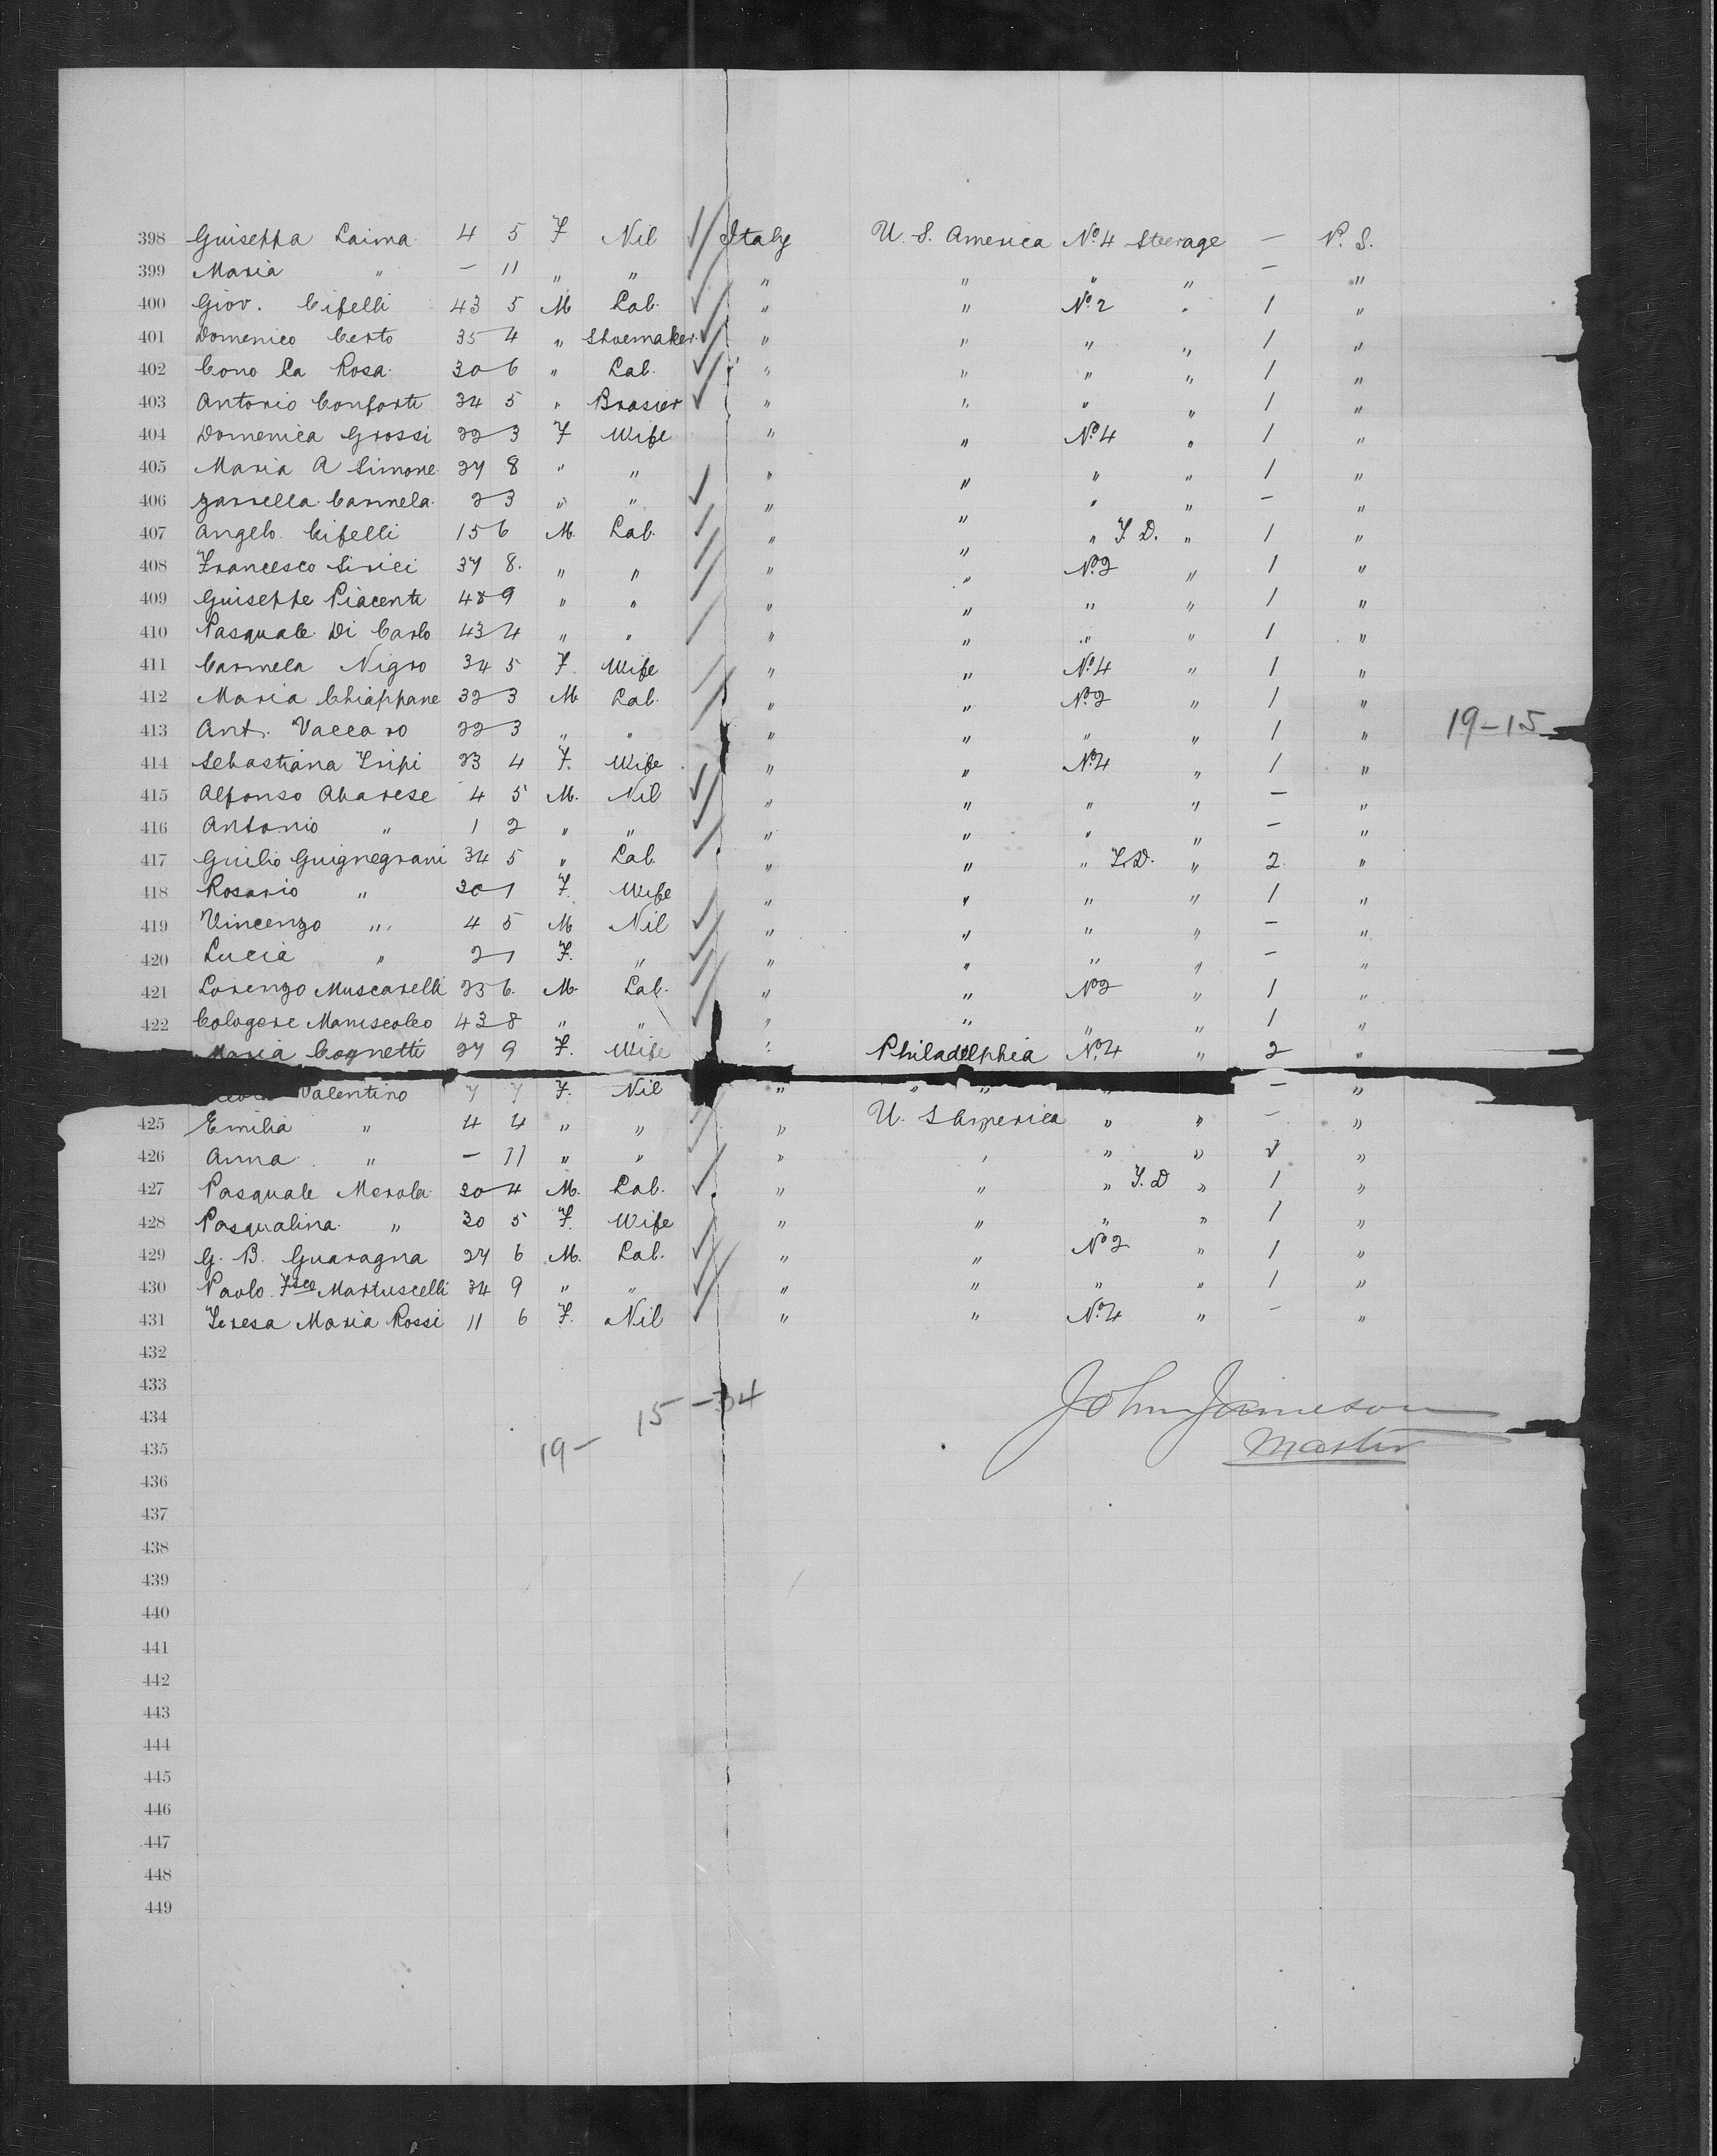 398 Guiseppa Laima 4 5 F Nil Italy U. S. America No 4 Steerage — P. S.
399 Maria " — 11 " " " " " " — "
400 Giov. Cifelli 43 5 M Lab. " " No 2 " 1 "
401 Domenico Certo 35 4 " Shoemaker " " " " 1 "
402 Cono La Rosa 30 6 " Lab. " " " " 1 "
403 Antonio Conforti 34 5 " Brasier " " " " 1 "
404 Domenica Grossi 22 3 F Wife " " No 4 " 1 "
405 Maria A Simone 27 8 " " " " " " 1 "
406 Carmela 2 3 " " " " " " — "
407 Angelo Cifelli 15 6 M. Lab. " " " F. D. " 1 "
408 Francesco Sirici 37 8. " " " " No 2 " 1 "
409 Guiseppe Piacenti 48 9 " " " " " " 1 "
410 Pasquale Di Carlo 43 4 " " " " " " 1 "
411 Carmela Nigro 34 5 F. Wife " " No 4 " 1 "
412 Maria Chiappane 32 3 M Lab. " " No 2 " 1 "
413 Ant. Vaccaro 22 3 " " " " " " 1 " 19-15
414 Sebastiana Tripi 23 4 F. Wife " " No 4 " 1 "
415 Alfonso Abarese 4 5 M. Nil " " " " — "
416 Antonio " 1 2 " " " " " " — "
417 Guilio Guignegrani 34 5 " Lab. " " " F.D. " 2 "
418 Rosario " 30 1 F. Wife " " " " 1 "
419 Vincenzo " 4 5 M Nil " " " " — "
420 Lucia " 2 1 F. " " " " " — "
421 Lorenzo Muscarelli 23 6. M. Lab. " " No 2 " 1 "
422 Cologere Maniscolco 43 8 " " " " " " 1 "
Maria Cognetti 27 9 F. Wife " Philadelphia No 4 " 2 "
Valentino 7 7 F. Nil " " " " — "
425 Emilia " 4 4 " " " U. S America " " — "
426 Anna " — 11 " " " " " " "
427 Pasquale Merola 30 4 M. Lab. " " " F. D " 1 "
428 Pasqualina " 30 5 F. Wife " " " " 1 "
429 G. B. Guaragna 27 6 M. Lab. " " No 2 " 1 "
430 Paolo Fsco Martuscelli 34 9 " " " " " " 1 "
431 Teresa Maria Rossi 11 6 F. Nil " " No 4 " — "
432
433
John Jameson
434
15 -34
435
19-
Master
436
437
438
439
440
441
442
443
444
445
446
447
448
449